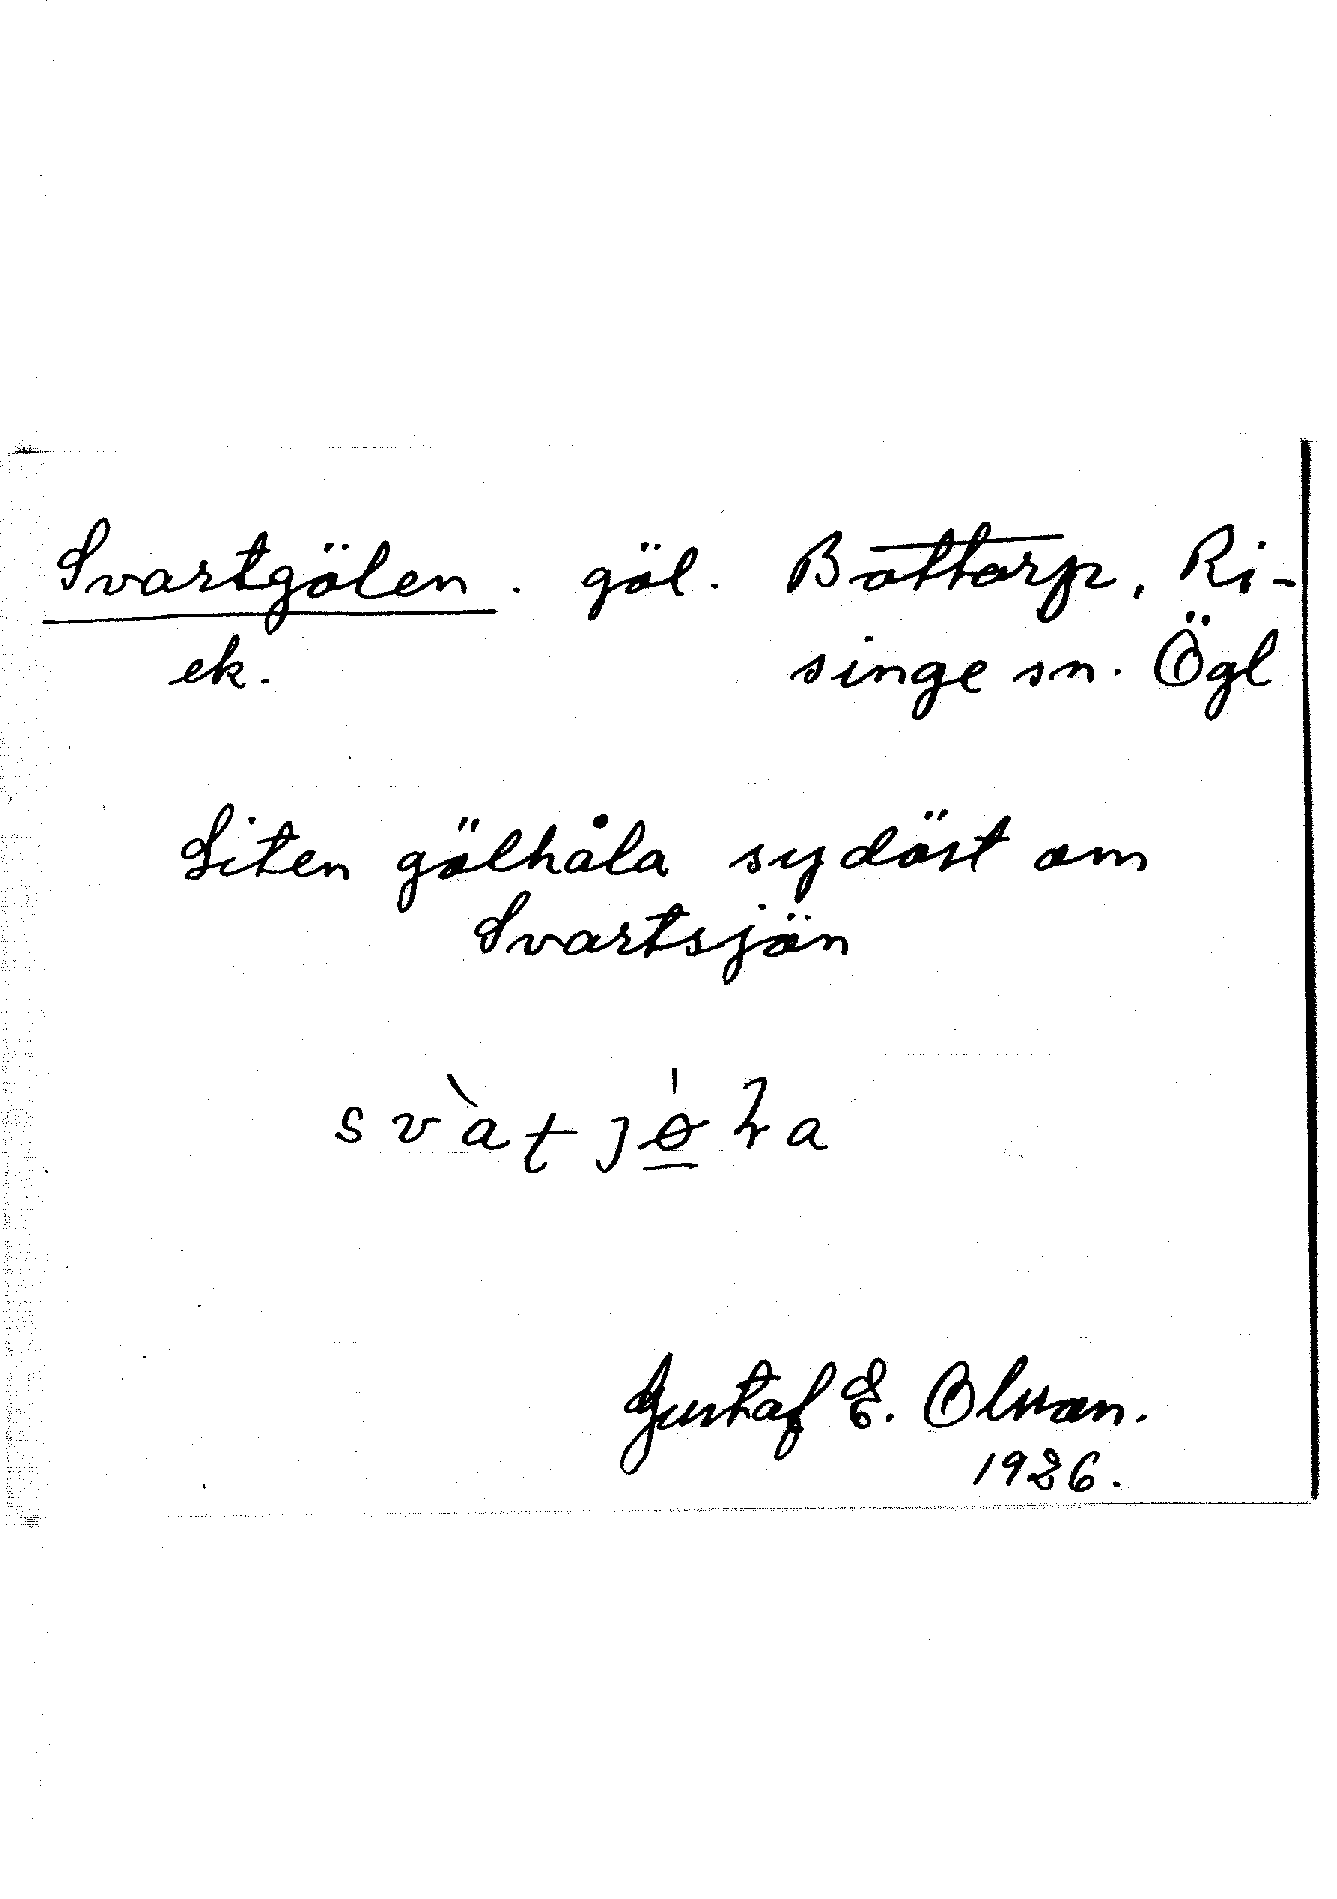 Svartgölen. göl. Bottorp, Ri-
ek. singe sn. Ögl
Liten gölhåla sydöst om
Svartsjön
Gustaf E. Olsson.
1926.